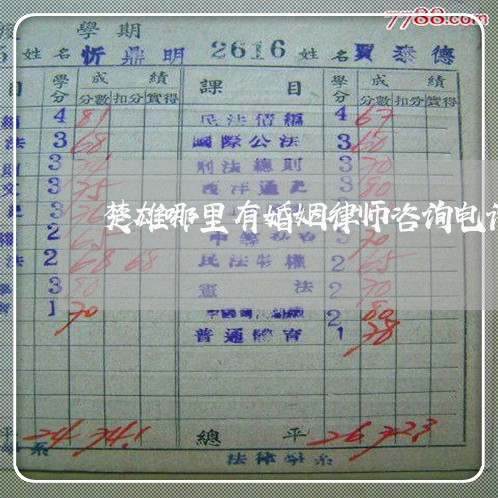 7788.com
學期
姓名 忻鼎明 2616 姓名 賈泰德
目 學分 成績 課目 學分 成績
分數 扣分 實得 分數 扣分 實得
4 81 民法債編 4 67
法 3 68 國際公法 3 60
3 刑法總則 3 70
3 75 西洋通史 3 80
楚雄哪里有婚姻律师咨询电话
權 2 65 3 70
法 2 68 68 民法物權 2 65
3 80 憲法 2 70
1 70 2 80
普通體育 1 78
平 24 74.1 總平 26 72.3
系 法律學系